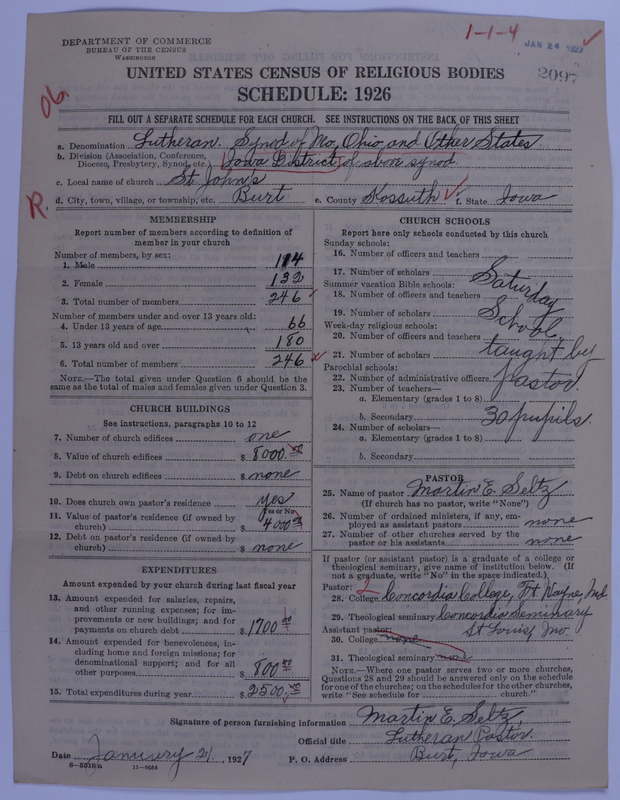 1-1-4
DEPARTMENT OF COMMERCE
BUREAU OF THE CENSUS
WASHINGTON
JAN 24 1927
2097
UNITED STATES CENSUS OF RELIGIOUS BODIES
SCHEDULE: 1926
06.
R.
FILL OUT A SEPARATE SCHEDULE FOR EACH CHURCH. SEE INSTRUCTIONS ON THE BACK OF THIS SHEET
a. Denomination Lutheran. Synod of Mo, Ohio, and Other States
b. Division (Association, Conference, Diocese, Presbytery, Synod, etc.) Iowa District of above synod
c. Local name of church St. John's
d. City, town, village, or township, etc. Burt e. County Kossuth f. State Iowa
MEMBERSHIP
Report number of members according to definition of
member in your church
Number of members, by sex:
1. Male 114
2. Female 132
3. Total number of members 246
Number of members under and over 13 years old:
4. Under 13 years of age 66
5. 13 years old and over 180
6. Total number of members 246
NOTE.—The total given under Question 6 should be the
same as the total of males and females given under Question 3.
CHURCH BUILDINGS
See instructions, paragraphs 10 to 12
7. Number of church edifices one
8. Value of church edifices $ 8000.00
9. Debt on church edifices $ none
10. Does church own pastor's residence yes
Yes or No
11. Value of pastor's residence (if owned by
church) $ 4000.00
12. Debt on pastor's residence (if owned by
church) $ none
EXPENDITURES
Amount expended by your church during last fiscal year
13. Amount expended for salaries, repairs,
and other running expenses; for im-
provements or new buildings; and for
payments on church debt $ 1700.00
14. Amount expended for benevolences, in-
cluding home and foreign missions; for
denominational support; and for all
other purposes $ 800.00
15. Total expenditures during year $ 2500.00
CHURCH SCHOOLS
Report here only schools conducted by this church
Sunday schools:
16. Number of officers and teachers
17. Number of scholars
Summer vacation Bible schools:
18. Number of officers and teachers
19. Number of scholars
Week-day religious schools:
20. Number of officers and teachers
21. Number of scholars
Parochial schools:
22. Number of administrative officers
23. Number of teachers—
a. Elementary (grades 1 to 8)
b. Secondary
24. Number of scholars—
a. Elementary (grades 1 to 8)
b. Secondary
Saturday
School
taught by
pastor.
30 pupils.
PASTOR
25. Name of pastor Martin E. Seltz
(If church has no pastor, write "None")
26. Number of ordained ministers, if any, em-
ployed as assistant pastors none
27. Number of other churches served by the
pastor or his assistants none
If pastor (or assistant pastor) is a graduate of a college or
theological seminary, give name of institution below. (If
not a graduate, write "No" in the space indicated.)
Pastor: 2
28. College Concordia College, Ft. Wayne, Ind
29. Theological seminary Concordia Seminary
St. Louis, Mo.
Assistant pastor:
30. College none
31. Theological seminary none
NOTE.—Where one pastor serves two or more churches,
Questions 28 and 29 should be answered only on the schedule
for one of the churches; on the schedules for the other churches,
write "See schedule for church."
Signature of person furnishing information Martin E. Seltz,
Official title Lutheran Pastor
Date January 21, 1927 P. O. Address Burt, Iowa
8-5318a 11-9654